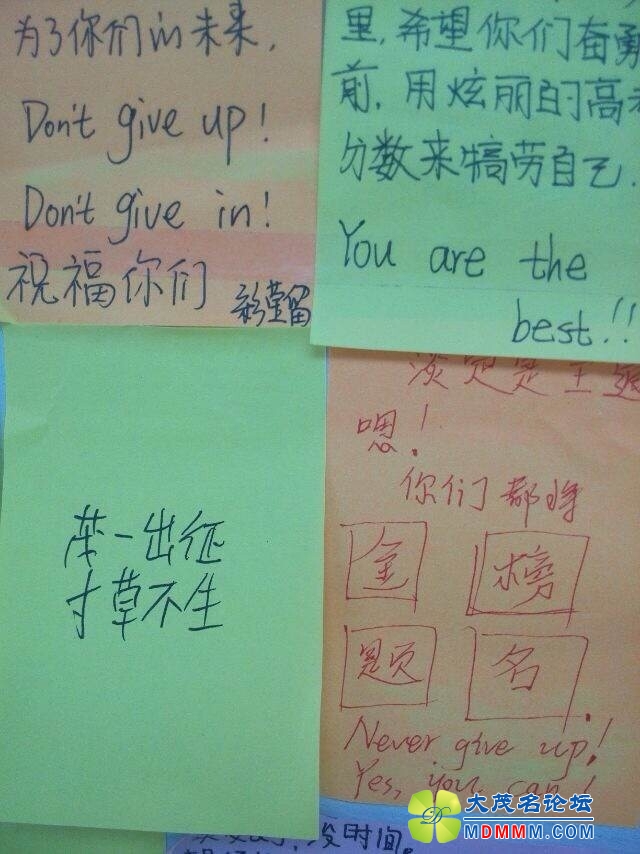 为了你们的未来,
Don't give up!
Don't give in!
祝福你们
里,希望你们奋勇
前,用炫丽的高考
分数来犒劳自己.
You are the
best!!
茂一出征
寸草不生
淡定是王道
嗯!
你们都将
金 榜
题 名
Never give up!
Yes, you can!
没时间。
大茂名论坛
MDMMM.COM